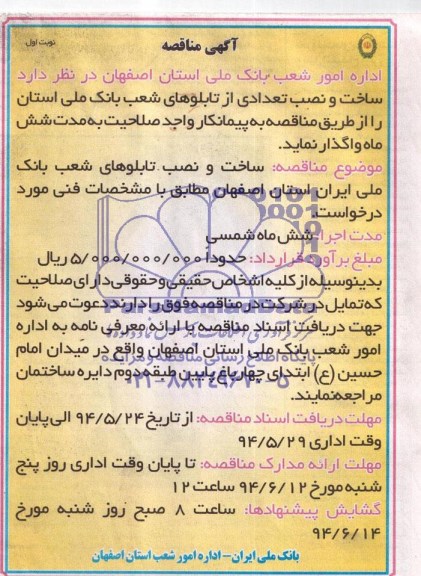 آگهی مناقصه
نوبت اول
اداره امور شعب بانک ملی استان اصفهان در نظر دارد
ساخت و نصب تعدادی از تابلوهای شعب بانک ملی استان
را از طریق مناقصه به پیمانکار واجد صلاحیت به مدت شش
ماه واگذار نماید.
موضوع مناقصه: ساخت و نصب تابلوهای شعب بانک
ملی ایران استان اصفهان مطابق با مشخصات فنی مورد
درخواست.
مدت اجرا: شش ماه شمسی
مبلغ برآورد قرارداد: حدودا ۵/۰۰۰/۰۰۰/۰۰۰ ریال
بدینوسیله از کلیه اشخاص حقیقی و حقوقی دارای صلاحیت
که تمایل در شرکت در مناقصه فوق را دارند دعوت می شود
جهت دریافت اسناد مناقصه با ارائه معرفی نامه به اداره
امور شعب بانک ملی استان اصفهان واقع در میدان امام
حسین (ع) ابتدای چهارباغ پایین طبقه دوم دایره ساختمان
مراجعه نمایند.
مهلت دریافت اسناد مناقصه: از تاریخ ۹۴/۵/۲۴ الی پایان
وقت اداری ۹۴/۵/۲۹
مهلت ارائه مدارک مناقصه: تا پایان وقت اداری روز پنج
شنبه مورخ ۹۴/۶/۱۲ ساعت ۱۲
گشایش پیشنهادها: ساعت ۸ صبح روز شنبه مورخ
۹۴/۶/۱۴
بانک ملی ایران - اداره امور شعب استان اصفهان
ParsNamadData
پایگاه اطلاع رسانی مناقصه و مزایده
۰۲۱-۸۸۳۴۹۶۷۰-۵